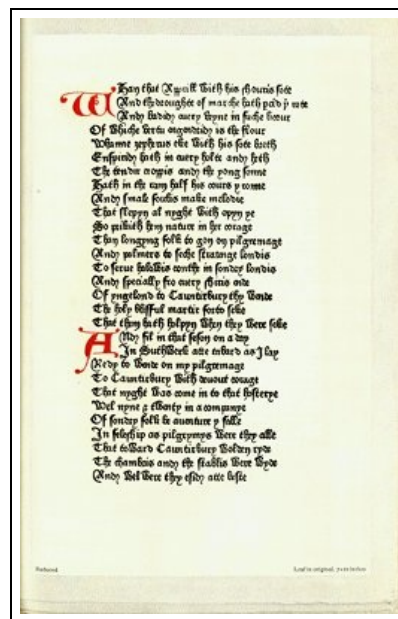 Whan that Apprill with his shouris sote
And the droughte of marche hath percid þ rote
And badid euery veyne in suche licour
Of whiche vertu engendrid is the flour
Whanne zepherus eke with his sote breth
Enspirid hath in euery holte and heth
The tendir croppis and the yong sonne
Hath in the ram half his cours y ronne
And smale foulis make melodie
That slepyn al nyght with opyn ye
So prikith hem nature in her corage
Than longyng folk to gon on pilgremage
And palmers to seche straunge londis
To serue halowis couthe in sondry londis
And specially fro euery shiris ende
Of yngelond to Caunterbury they wende
The holy blisful martir forto seke
That them hath holpyn when they were seke
And fil in that seson on a day
In Suthwerk atte tabard as I lay
Redy to wende on my pilgremage
To Cauntirbury with deuout corage
That nyght was come in to that hosterye
Wel nyne & twenty in a companye
Of sondry folk be auenture y falle
In feleship as pilgryms were they alle
That toward Cauntirbury wolden ryde
The chambris and the stablis were wyde
And wel were they esid atte beste
Reduced.
Leaf in original, 7×10 inches